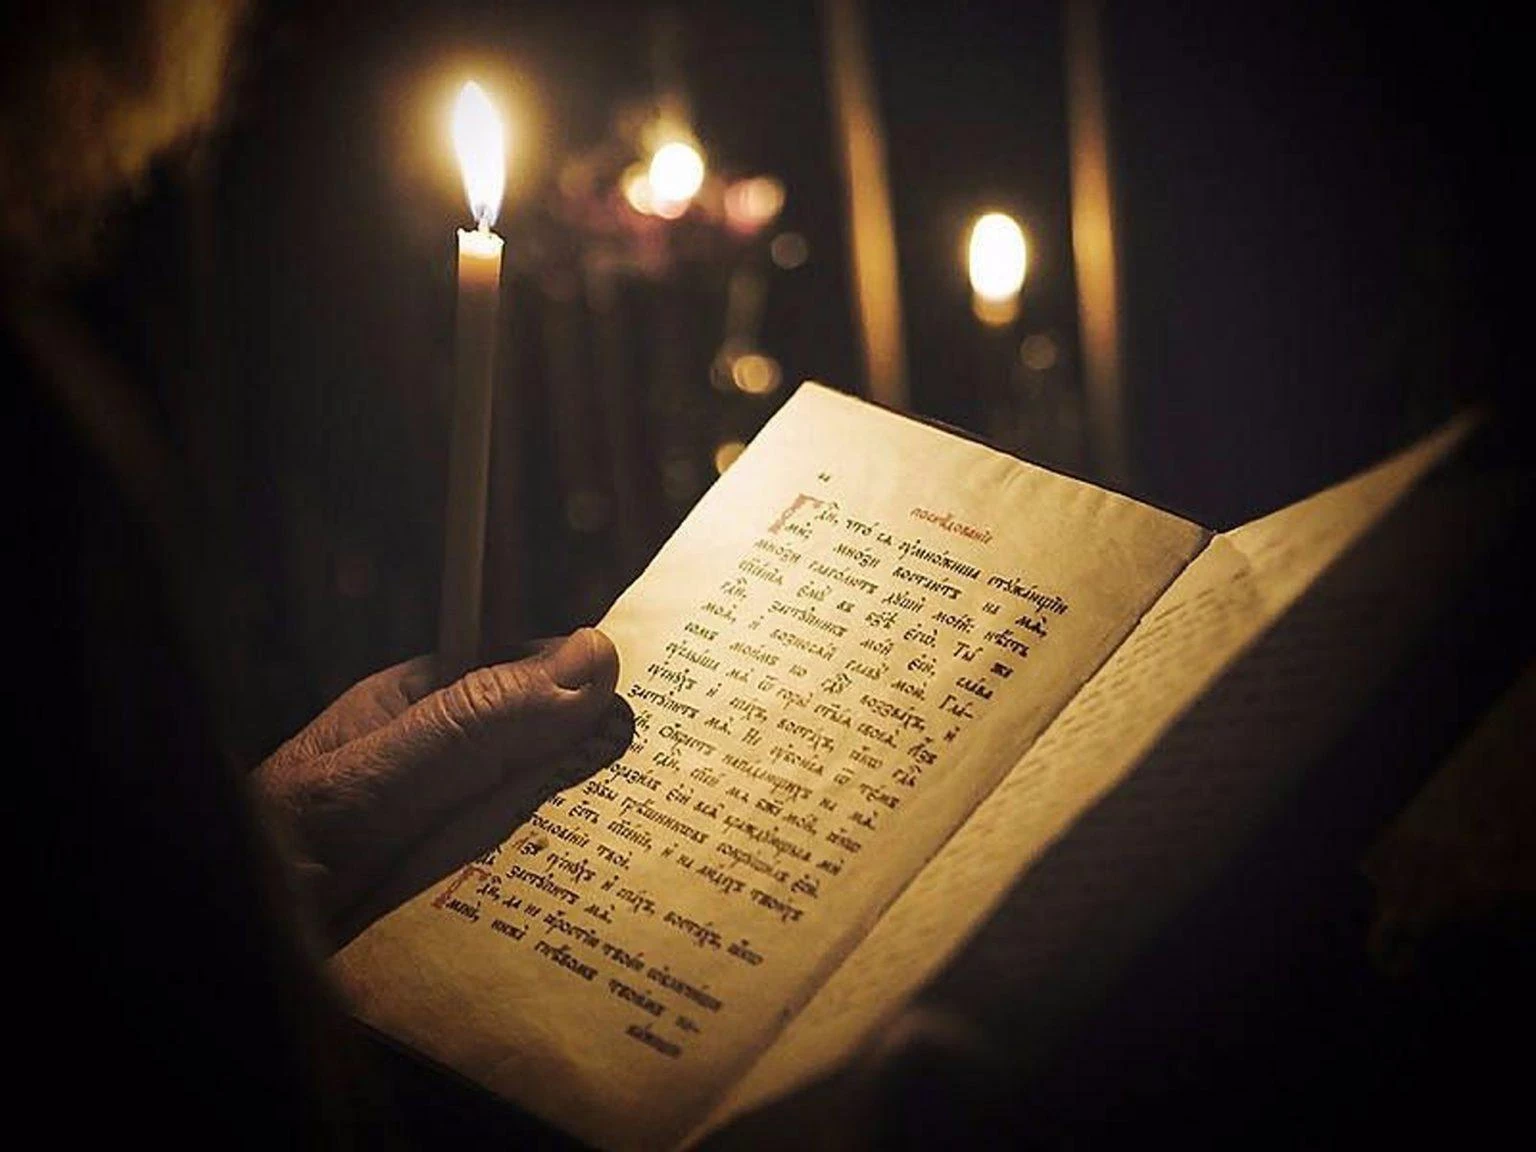 послѣдованїе
Гдⷭ҇и, что́ сѧ ᲂу҆мно́жиша стꙋжа́ющїи
мѝ; мно́зи востаю́тъ на мѧ̀,
мно́зи глаго́лютъ дꙋшѝ мое́й: нѣ́сть
сп҃се́нїѧ є҆мꙋ̀ въ бз҃ѣ є҆гѡ̀. Ты́ же
гдⷭ҇и, застꙋ́пникъ мо́й є҆сѝ, сла́ва
моѧ̀, и҆ возносѧ́й главꙋ̀ мою̀. Гла́-
сомъ мои́мъ ко гдⷭ҇ꙋ воззва́хъ, и҆
ᲂу҆слы́ша мѧ̀ ѿ горы̀ ст҃ы́ѧ своеѧ̀. А҆́зъ
ᲂу҆снꙋ́хъ и҆ спа́хъ, воста́хъ, ꙗ҆́кѡ гдⷭ҇ь
застꙋ́питъ мѧ̀. Не ᲂу҆бою́сѧ ѿ те́мъ
ѻ҆́крестъ напа́дающихъ на мѧ̀.
гдⷭ҇и, сп҃си́ мѧ бж҃е мо́й, ꙗ҆́кѡ
порази́лъ є҆сѝ всѧ̑ вражд́ꙋющыѧ мѝ
зꙋ́бы грѣ́шникѡвъ сокрꙋши́лъ є҆сѝ.
є҆́сть сп҃се́нїе, и҆ на лю́дехъ твои́хъ
благослове́нїе твоѐ.
А҆́зъ ᲂу҆снꙋ́хъ и҆ спа́хъ, воста́хъ, ꙗ҆́кѡ
застꙋ́питъ мѧ̀.
Гдⷭ҇и, да не ꙗ҆́ростїю твое́ю ѡ҆бличи́ши
менѐ, нижѐ гнѣ́вомъ твои́мъ на-
ка́жеши